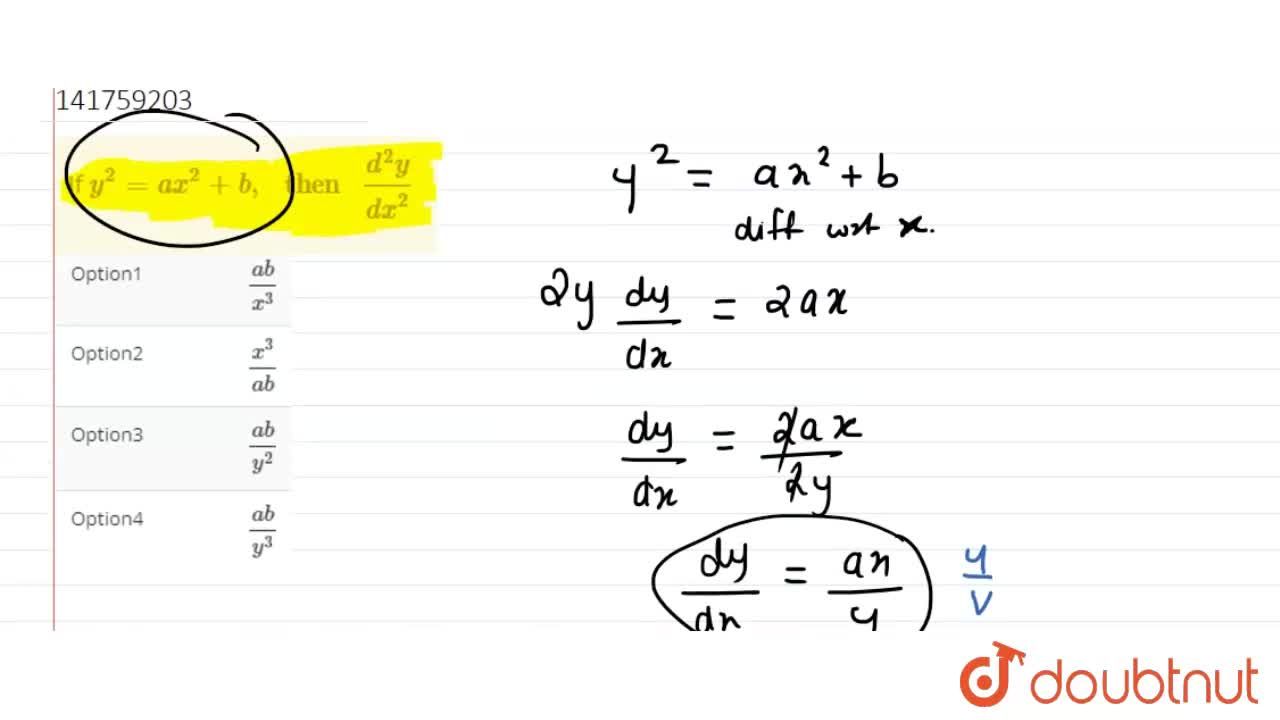 141759203
If y² = ax² + b, then d²y/dx²
Option1 ab/x³
Option2 x³/ab
Option3 ab/y²
Option4 ab/y³
y² = ax² + b
diff wrt x.
2y dy/dx = 2ax
dy/dx = 2ax/2y
dy/dx = ax/y
u/v
doubtnut